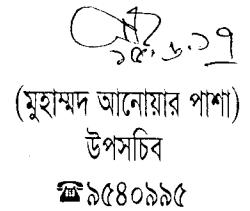 ১৫.৬.১৭
(মুহাম্মদ আনোয়ার পাশা)
উপসচিব
☎৯৫৪০৯৯৫